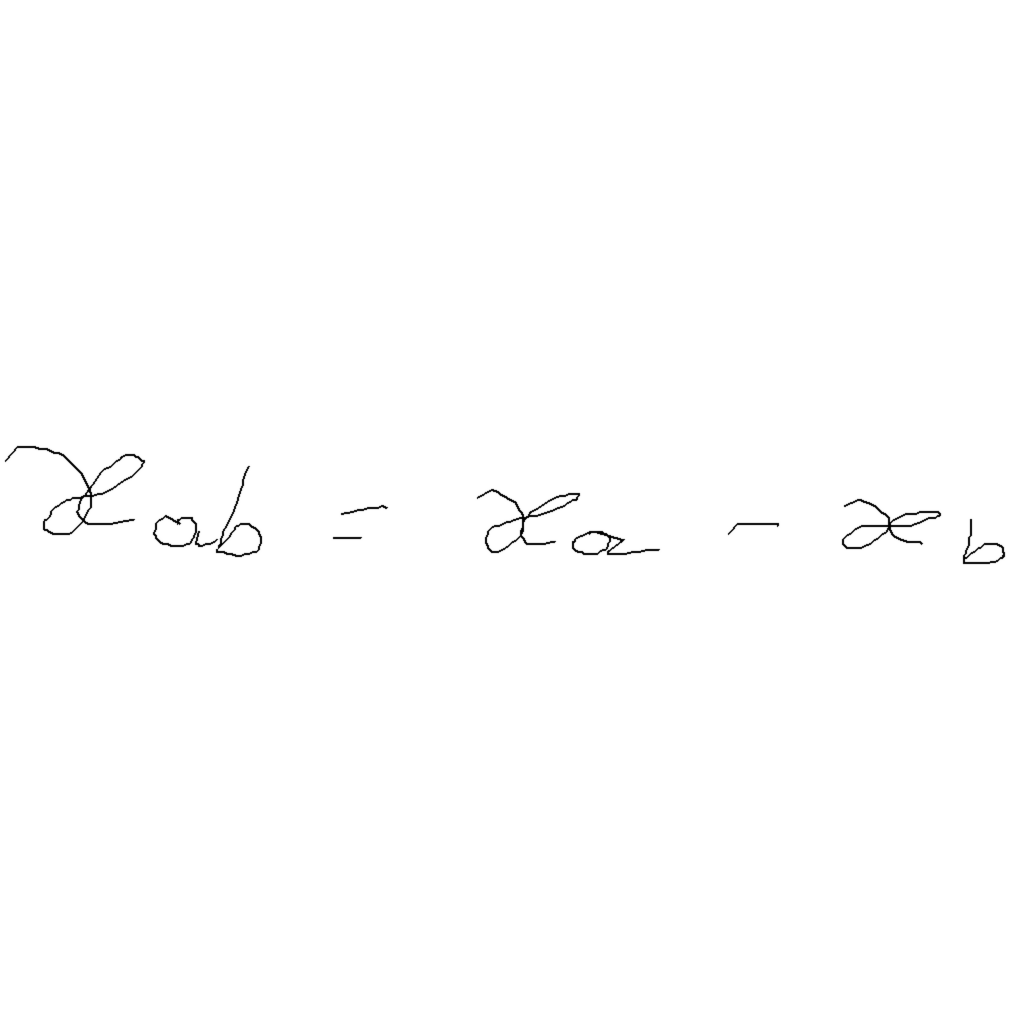 x_{ab} = x_a - x_b